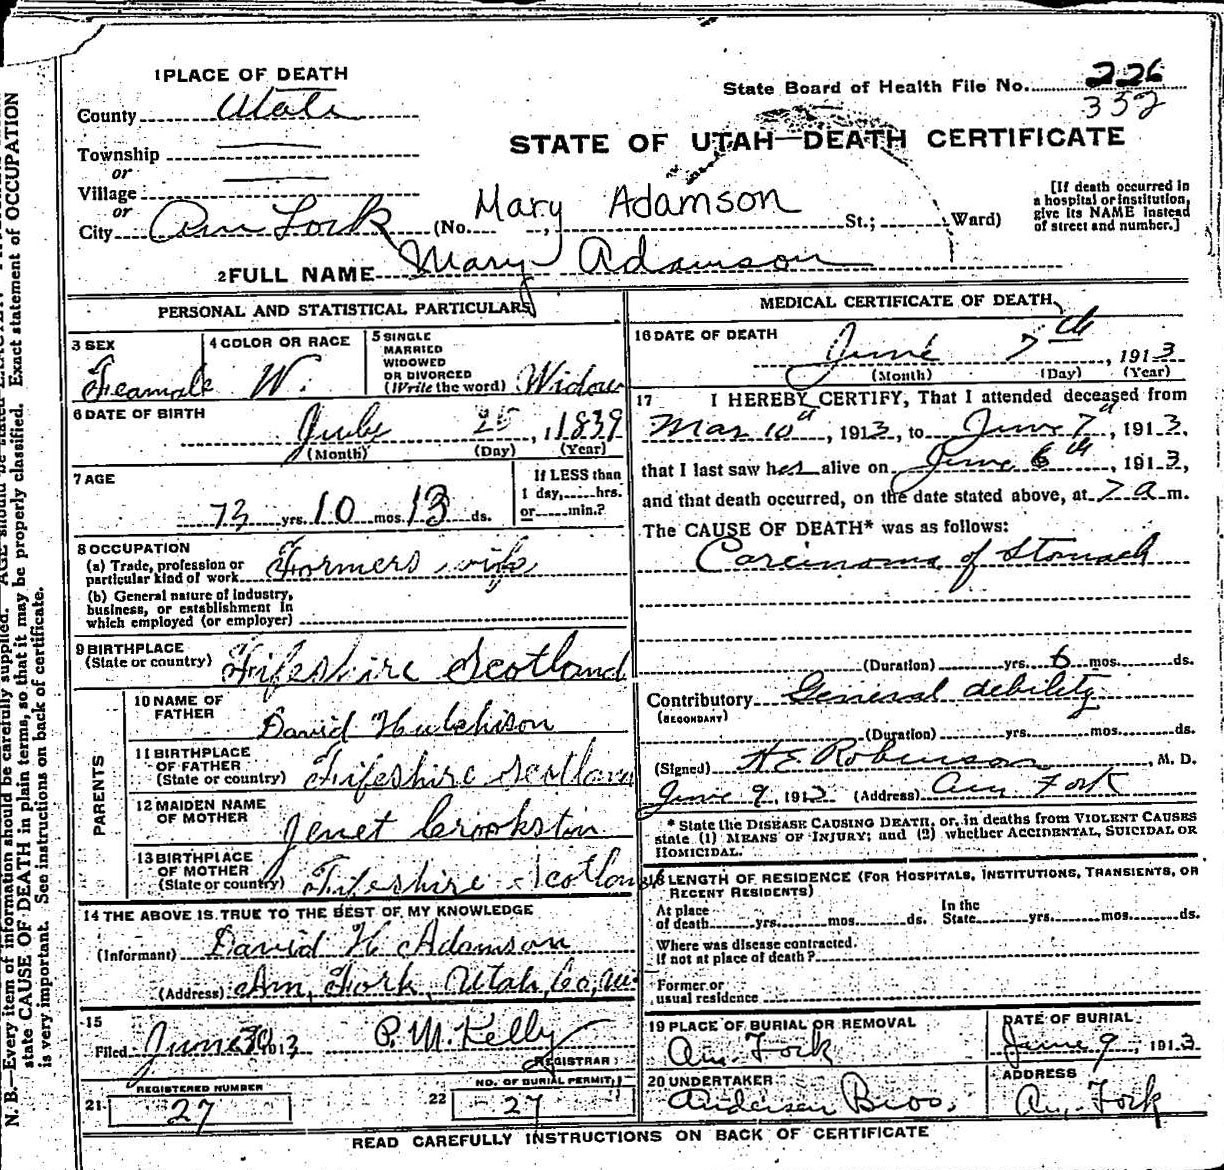 1 PLACE OF DEATH
County Utah
Township
or
Village
or
City Am Fork (No. , St.; Ward)
State Board of Health File No. 226
332
STATE OF UTAH—DEATH CERTIFICATE
Mary Adamson
[If death occurred in
a hospital or institution,
give its NAME instead
of street and number.]
2 FULL NAME Mary Adamson
PERSONAL AND STATISTICAL PARTICULARS
3 SEX
Feamale
4 COLOR OR RACE
W.
5 SINGLE
MARRIED
WIDOWED
OR DIVORCED
(Write the word) Widow
6 DATE OF BIRTH
25, 1839
(Month) (Day) (Year)
7 AGE
73 yrs. 10 mos. 13 ds.
If LESS than
1 day, hrs.
or min.?
8 OCCUPATION
(a) Trade, profession or
particular kind of work Formers wife
(b) General nature of industry,
business, or establishment in
which employed (or employer)
9 BIRTHPLACE
(State or country) Fifeshire Scotland
PARENTS
10 NAME OF
FATHER
David Hutchison
11 BIRTHPLACE
OF FATHER
(State or country) Fifeshire Scotland
12 MAIDEN NAME
OF MOTHER
Jenet Crookston
13 BIRTHPLACE
OF MOTHER
(State or country) Fifeshire Scotland
14 THE ABOVE IS TRUE TO THE BEST OF MY KNOWLEDGE
(Informant) David H Adamson
(Address) Am, Fork, Utah, Co, Ut
15
Filed June 30 1913 P. M. Kelly
REGISTRAR
REGISTERED NUMBER
21 27
NO. OF BURIAL PERMIT
22 27
MEDICAL CERTIFICATE OF DEATH
16 DATE OF DEATH
June 7th, 1913
(Month) (Day) (Year)
17 I HEREBY CERTIFY, That I attended deceased from
Mar 10th, 1913, to June 7th, 1913,
that I last saw her alive on June 6th, 1913,
and that death occurred, on the date stated above, at 7 a m.
The CAUSE OF DEATH* was as follows:
Carcinoma of Stomach
(Duration) yrs. 6 mos. ds.
Contributory General debility
(SECONDARY)
(Duration) yrs. mos. ds.
(Signed) H. E. Robinson, M. D.
June 9, 1913 (Address) Am Fork
* State the DISEASE CAUSING DEATH, or, in deaths from VIOLENT CAUSES
state (1) MEANS OF INJURY; and (2) whether ACCIDENTAL, SUICIDAL OR
HOMICIDAL.
18 LENGTH OF RESIDENCE (FOR HOSPITALS, INSTITUTIONS, TRANSIENTS, OR
RECENT RESIDENTS)
At place
of death yrs. mos. ds.
In the
State yrs. mos. ds.
Where was disease contracted,
if not at place of death?
Former or
usual residence
19 PLACE OF BURIAL OR REMOVAL
Am. Fork
DATE OF BURIAL
June 9, 1913
20 UNDERTAKER
Anderson Bros.
ADDRESS
Am, Fork
READ CAREFULLY INSTRUCTIONS ON BACK OF CERTIFICATE
N. B.—Every item of information should be carefully supplied. AGE should be stated EXACTLY.
state CAUSE OF DEATH in plain terms, so that it may be properly classified. Exact statement of OCCUPATION
is very important. See instructions on back of certificate.